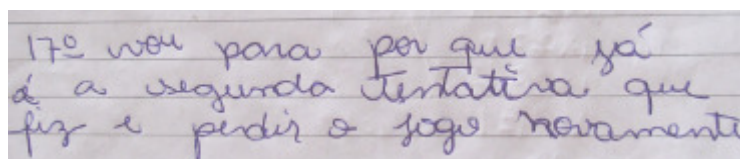 17º vou para por que já
é a segunda tentativa que
fiz e perdir o jogo novamente